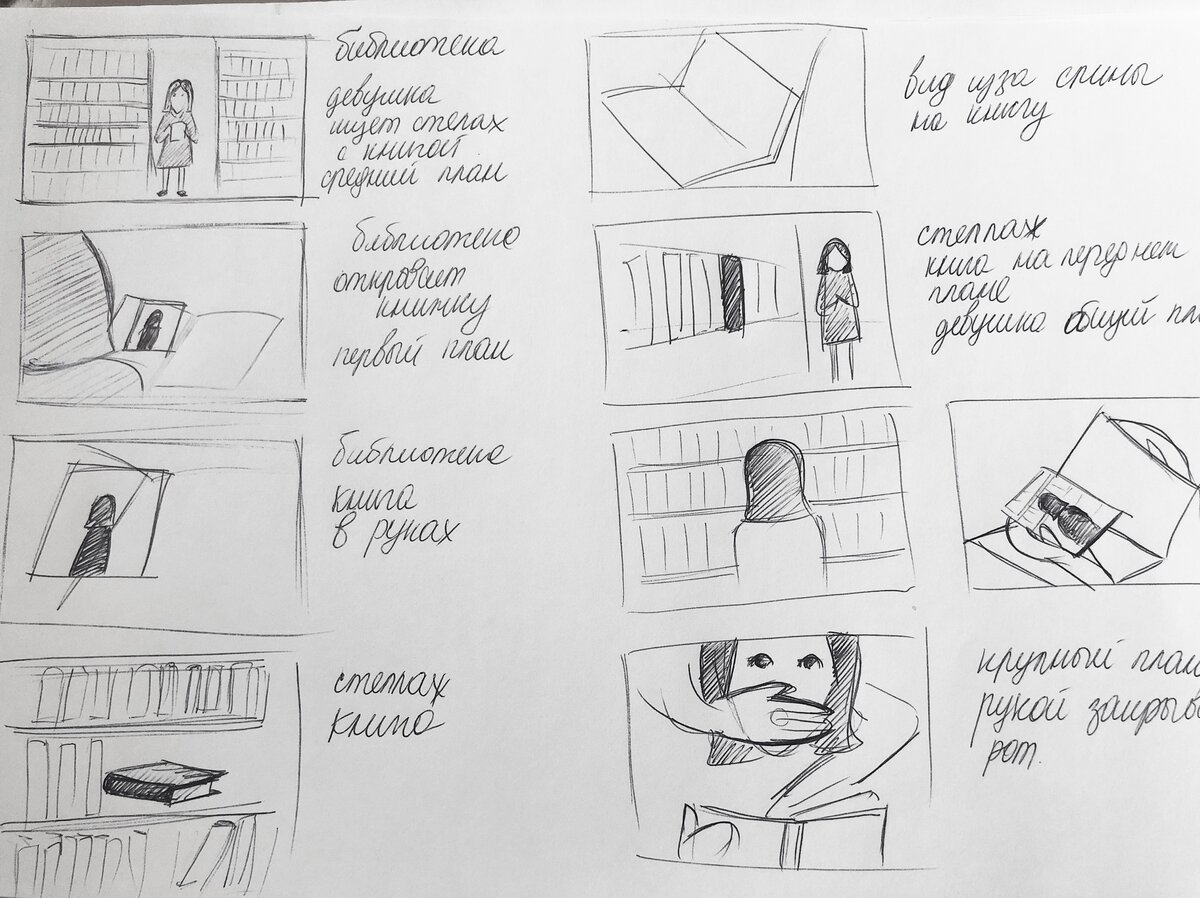 библиотека
девушка
ищет стелах
с книгой
средний план
библиотека
открывает
книжку
первый план
библиотека
книга
в руках
стеллах
книга
вид изза спины
на книгу
стеллаж
книга на переднем
плане
девушка общий пла
крупный план
рукой закрыв
рот.